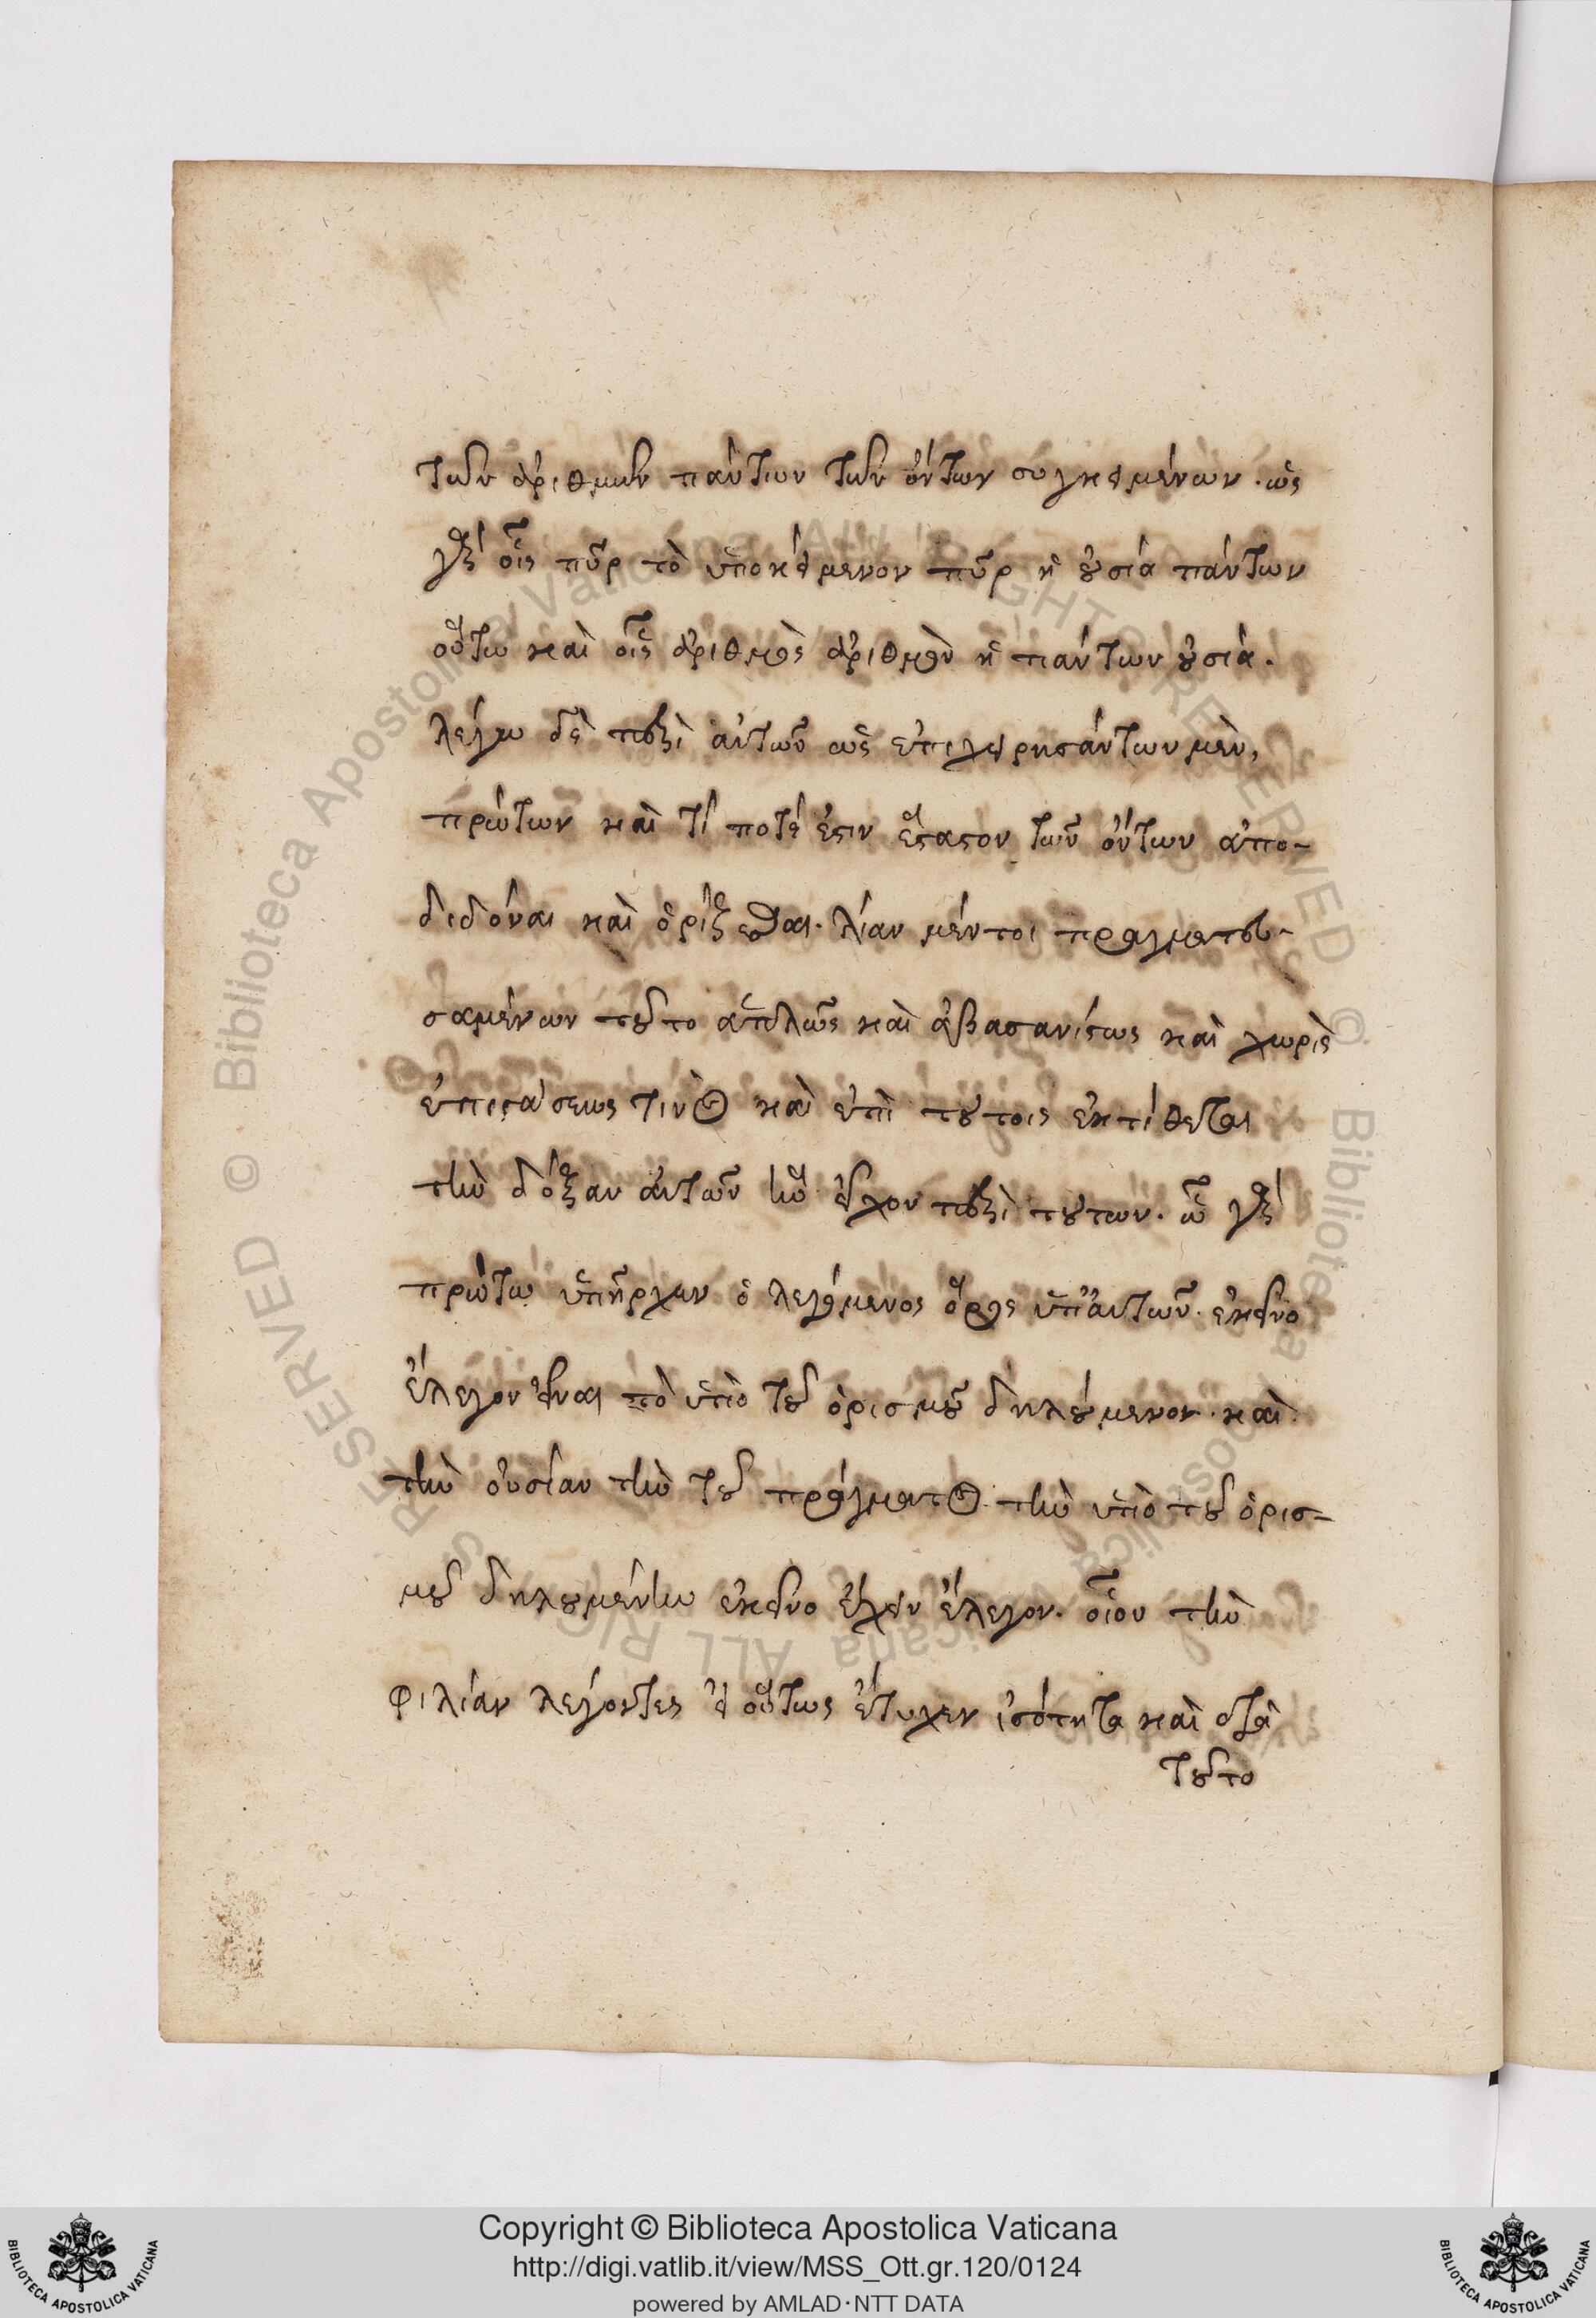 τῶν ἀριθμῶν πάντων τῶν ὄντων συγκειμένων. ὡς
γὰρ οἷς πῦρ τὸ ὑποκείμενον πῦρ ἡ οὐσία πάντων
οὕτω καὶ οἷς ἀριθμὸς ἀριθμὸν ἡ πάντων οὐσία.
λέγω δὲ περὶ αὐτῶν ὡς ἐπιχειρησάντων μὲν,
πρώτων καὶ τί ποτέ ἐστιν ἕκαστον τῶν ὄντων ἀπο-
διδόναι καὶ ὁρίζεσθαι. λίαν μέντοι πραγματευ-
σαμένων τοῦτο ἁπλῶς καὶ ἀβασανίστως καὶ χωρὶς
ἐπιστάσεως τινὸς καὶ ἐπὶ τούτοις ἐκτίθεται
τὴν δόξαν αὐτῶν ἣν εἶχον περὶ τούτων. ᾧ γὰρ
πρώτῳ ὑπῆρχεν ὁ λεγόμενος ὅρος ὑπ' αὐτῶν. ἐκεῖνο
ἔλεγον εἶναι τὸ ὑπὸ τοῦ ὁρισμοῦ δηλούμενον. καὶ
τὴν οὐσίαν τὴν τοῦ πράγματος τὴν ὑπὸ τοῦ ὁρισ-
μοῦ δηλουμένην ἐκεῖνο ἔχειν ἔλεγον. οἷον τὴν
φιλίαν λέγοντες εἰ οὕτως ἔτυχεν ἰσότητα καὶ διὰ
τοῦτο
Copyright © Biblioteca Apostolica Vaticana
http://digi.vatlib.it/view/MSS_Ott.gr.120/0124
powered by AMLAD·NTT DATA